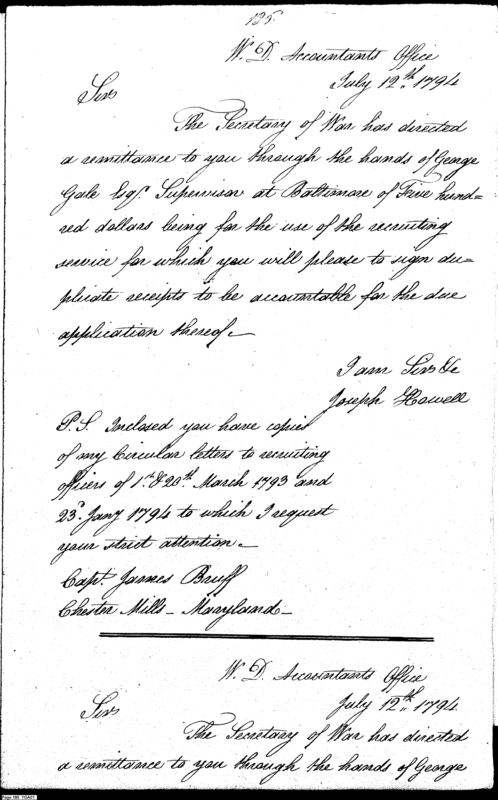 135.
W. D. Accountants Office
July 12th. 1794
Sir
The Secretary of War has directed
a remittance to you through the hands of George
Gale Esqr. Supervisor at Baltimore of Five hund=
red dollars being for the use of the recruiting
service for which you will please to sign du=
plicate receipts to be accountable for the due
application thereof.
I am Sir &c
Joseph Howell
P.S. Inclosed you have copies
of my Circular letters to recruiting
officers of 1st. & 20th. March 1793 and
23d. Jany 1794 to which I request
your strict attention.
Capt. James Bruff
Chester Mills - Maryland -
W. D. Accountants Office
July 12th. 1794
Sir
The Secretary of War has directed
a remittance to you through the hands of George